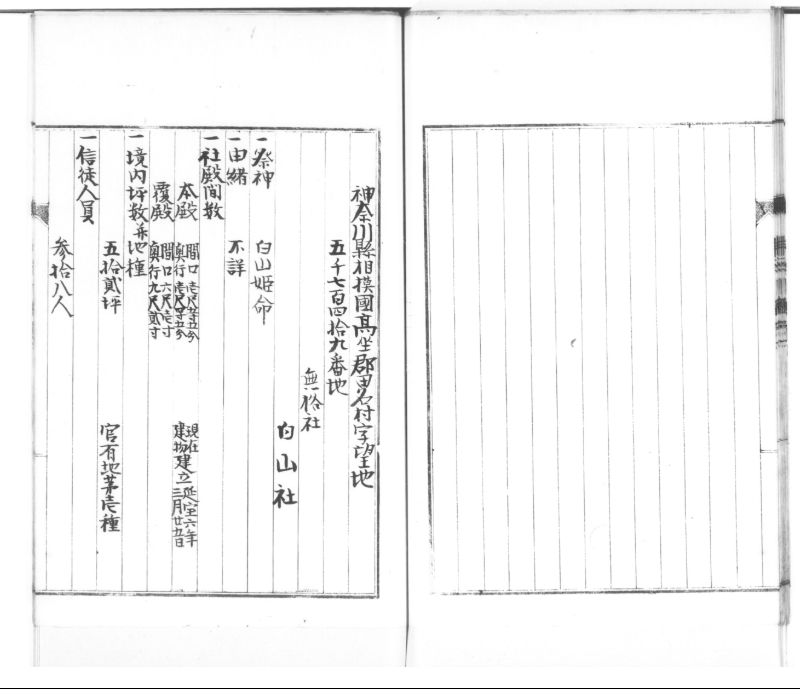 神奈川縣相摸國高坐郡田名村字望地
五千七百四拾九番地
無格社
白山社
一祭神 白山姫命
一由緒 不詳
一社殿間数
本殿 間口壱尺五寸五分 奥行壱尺五寸五分 現在建物建立延宝六年三月廿五日
覆殿 間口六尺壱寸 奥行九尺貳寸
一境内坪数并地種
五拾貳坪 官有地第壱種
一信徒人員
参拾八人